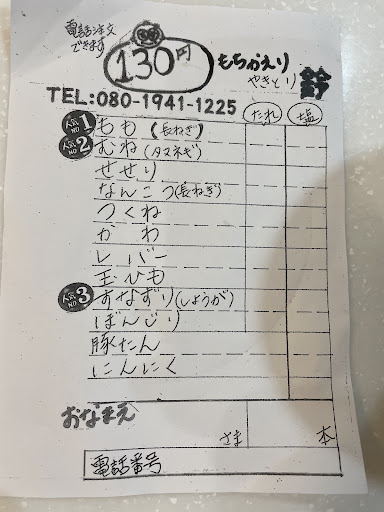 電話注文
できます
130円
もちかえり
やきとり 鈴
TEL:080-1941-1225
たれ 塩
人気NO1 もも (長ねぎ)
人気NO2 むね (タマネギ)
せせり
なんこつ(長ねぎ)
つくね
かわ
レバー
玉ひも
人気NO3 すなずり(しょうが)
ぼんじり
豚たん
にんにく
おなまえ
さま 本
電話番号